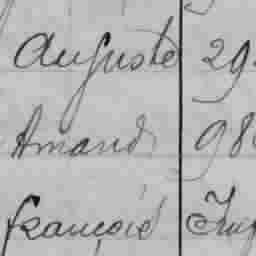 Auguste 29
Amand 98
françois